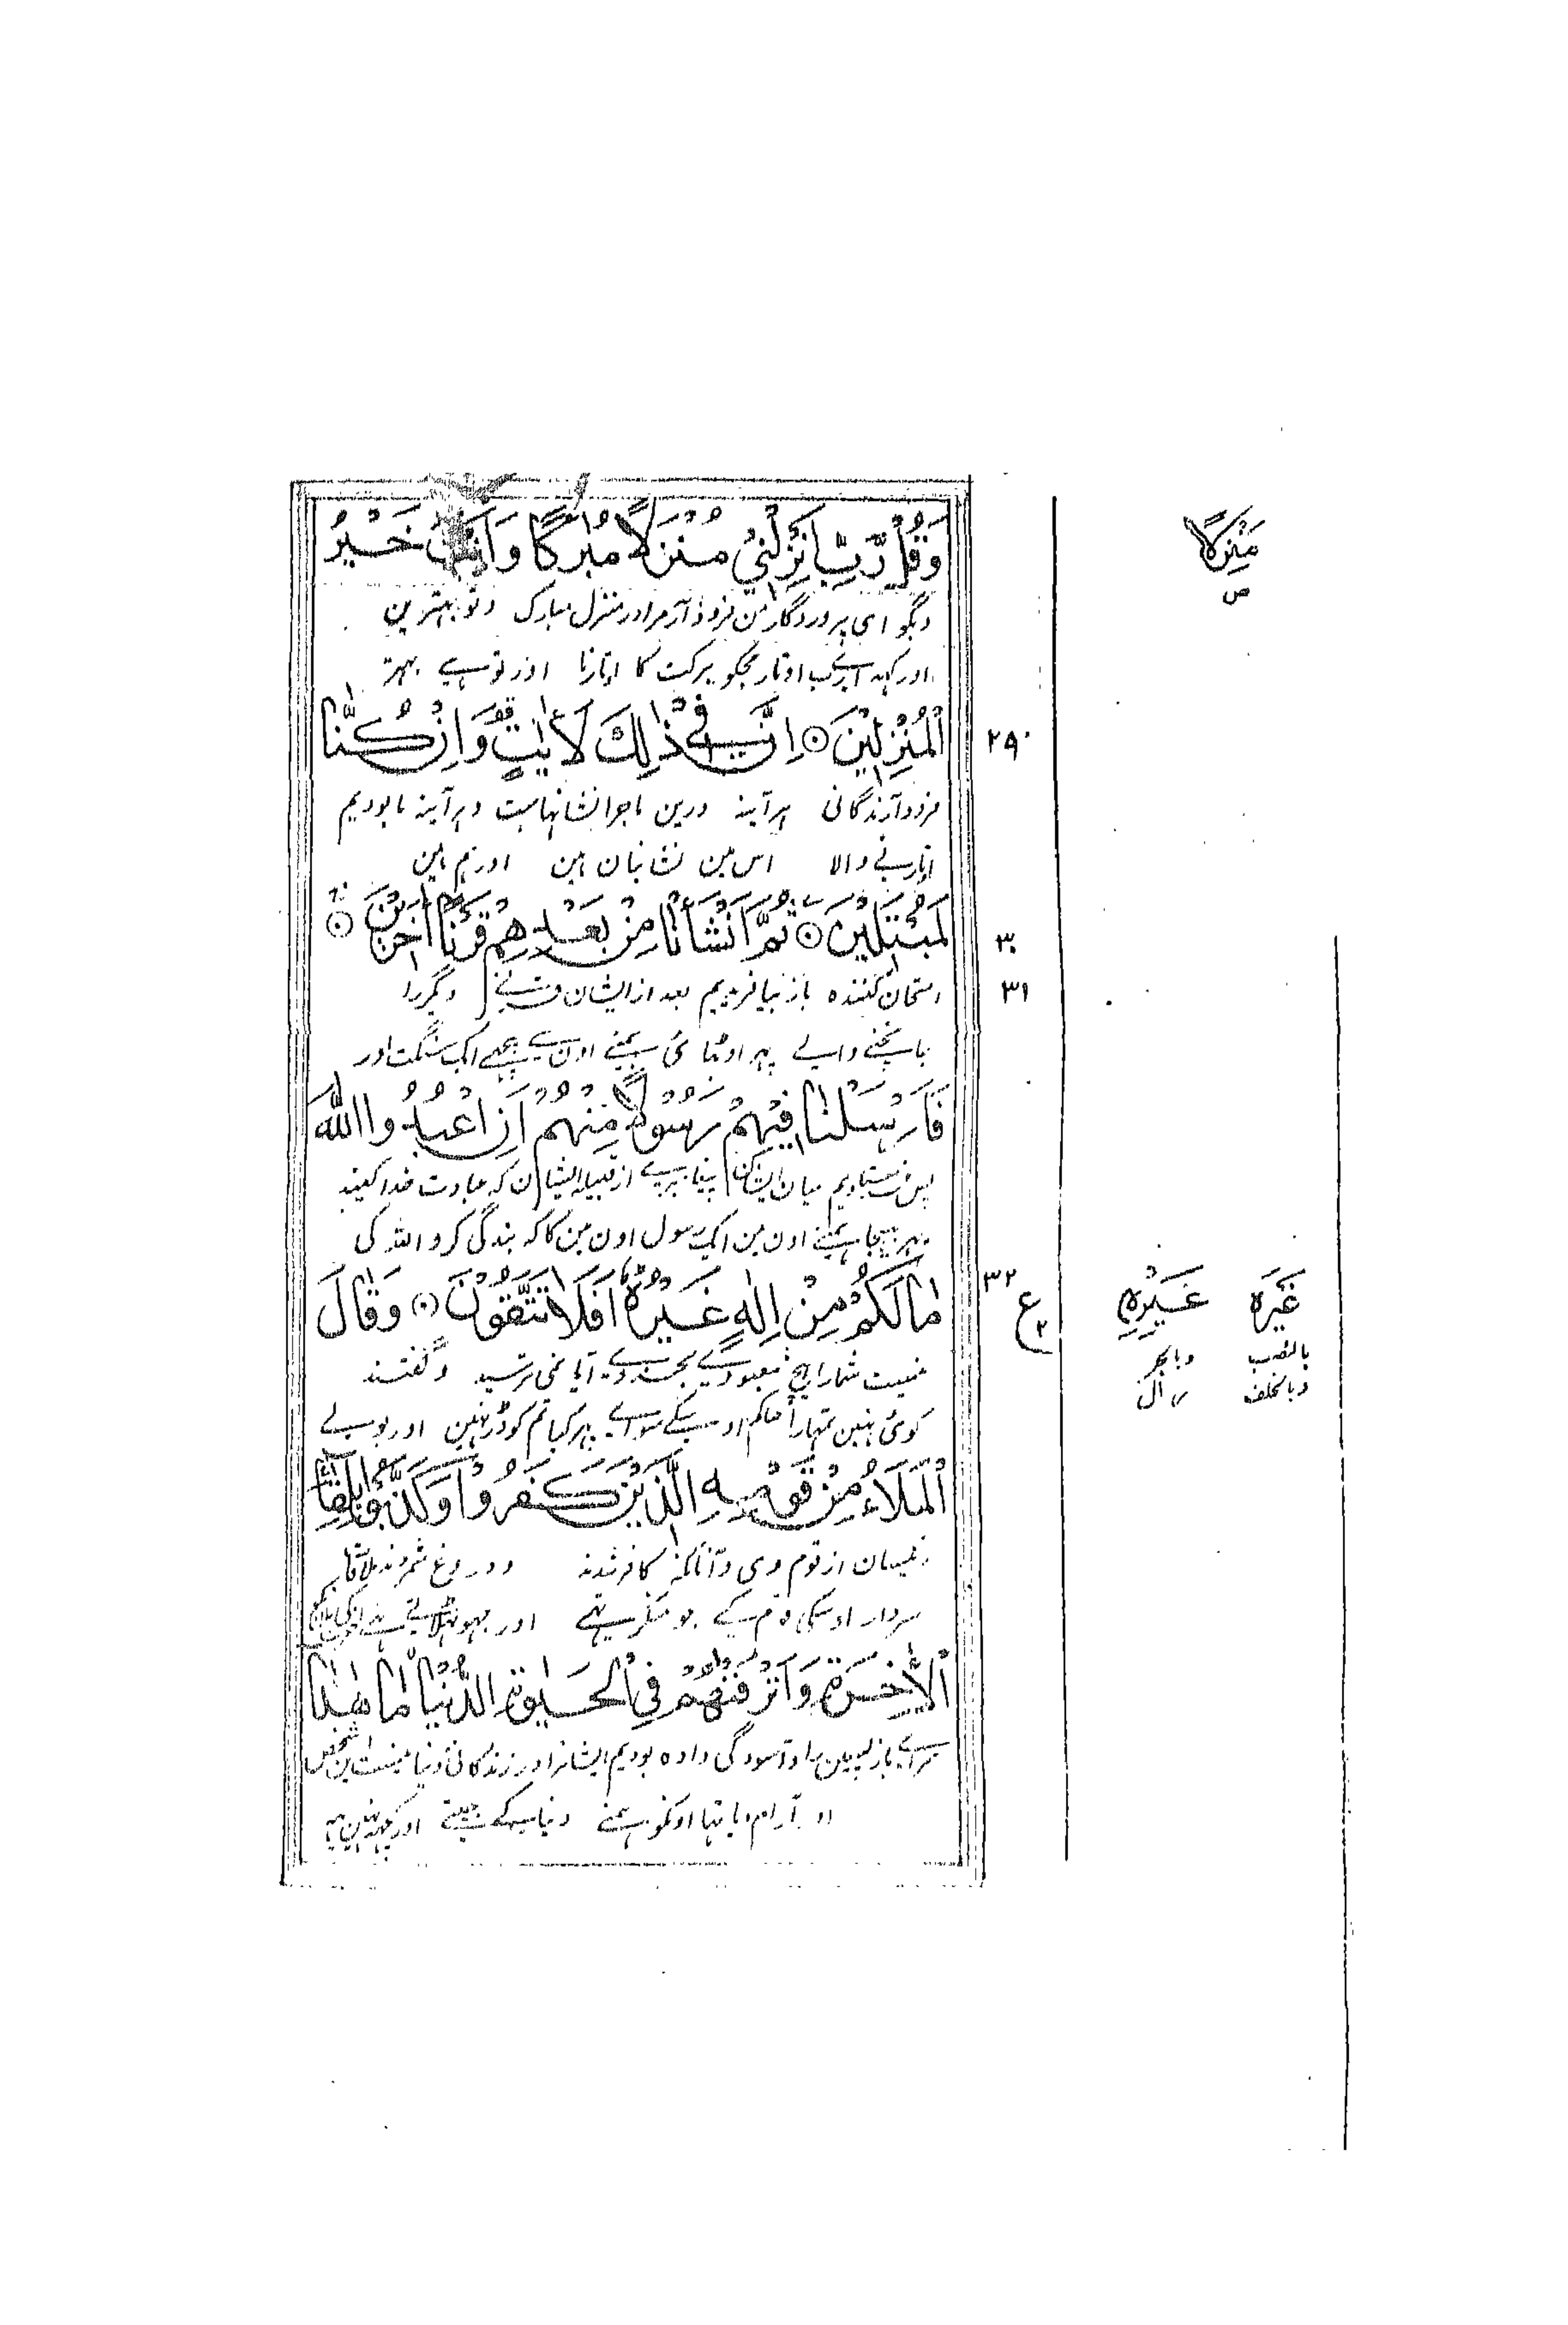 وَقُلْ رَّبِّ اَنْزِلْنِيْ مُنْزَلًا مُّبٰرَكًا وَّاَنْتَ خَيْرُ
وبگو ای پروردگار من فرود آر مرا در منزل مبارک وتو بهترین
اور کہہ اے رب اوتار مجکو برکت کا اوتارنا اور تو ہے بہتر
الْمُنْزِلِيْنَ ۝ اِنَّ فِيْ ذٰلِكَ لَاٰيٰتٍ وَّاِنْ كُنَّا
فرود آرندگانی ہر آینہ درین ماجرا نشانہاست وہر آینہ ما بودیم
اوتارنے والا اس مین نشانیان ہین اور ہم ہین
لَمُبْتَلِيْنَ ۝ ثُمَّ اَنْشَأْنَا مِنْۢ بَعْدِهِمْ قَرْنًا اٰخَرِيْنَ ۝
امتحان کنندہ باز بیافریدیم بعد از ایشان قرنے دیگر را
جانچنے والے پہر اوٹھائی ہمنے اون سے پیچھے ایک سنگت اور
فَاَرْسَلْنَا فِيْهِمْ رَسُوْلًا مِّنْهُمْ اَنِ اعْبُدُوا اللّٰهَ
پس فرستادیم میان ایشان پیغامبرے از قبیلہ ایشان کہ عبادت خدا کنید
پہر بھیجا ہمنے اون مین ایک رسول اون مین کا کہ بندگی کرو اللہ کی
مَا لَكُمْ مِّنْ اِلٰهٍ غَيْرُهٗ اَفَلَا تَتَّقُوْنَ ۝ وَقَالَ
نیست شمارا ہیچ معبودے بجز وے آیا نمی ترسید وگفتند
کوئی نہین تمہارا حاکم اوسکے سوائے پہر کیا تم کو ڈر نہین اور بولے
الْمَلَاُ مِنْ قَوْمِهِ الَّذِيْنَ كَفَرُوْا وَكَذَّبُوْا بِلِقَآءِ
رئیسان از قوم وی آنانکہ کافر شدند ودروغ شمردند ملاقات
سردار اوسکی قوم کے جو منکر تھے اور جھوٹھلاتے تھے
الْاٰخِرَةِ وَاَتْرَفْنٰهُمْ فِي الْحَيٰوةِ الدُّنْيَا مَا هٰذَا
سرائے بازپسین را وآسودگی دادہ بودیم ایشانرا در زندگانی دنیا نیست این شخص
اور آرام دیا تھا اونکو ہمنے دنیا کے جیتے اور کچھ نہین یہ
مَنْزِلًا
ص
۲۹
۳۰
۳۱
۳۲
ع
۲
غَيْرَهٗ غَيْرِهٖ
بالنصب وبالجر
وبالخلف